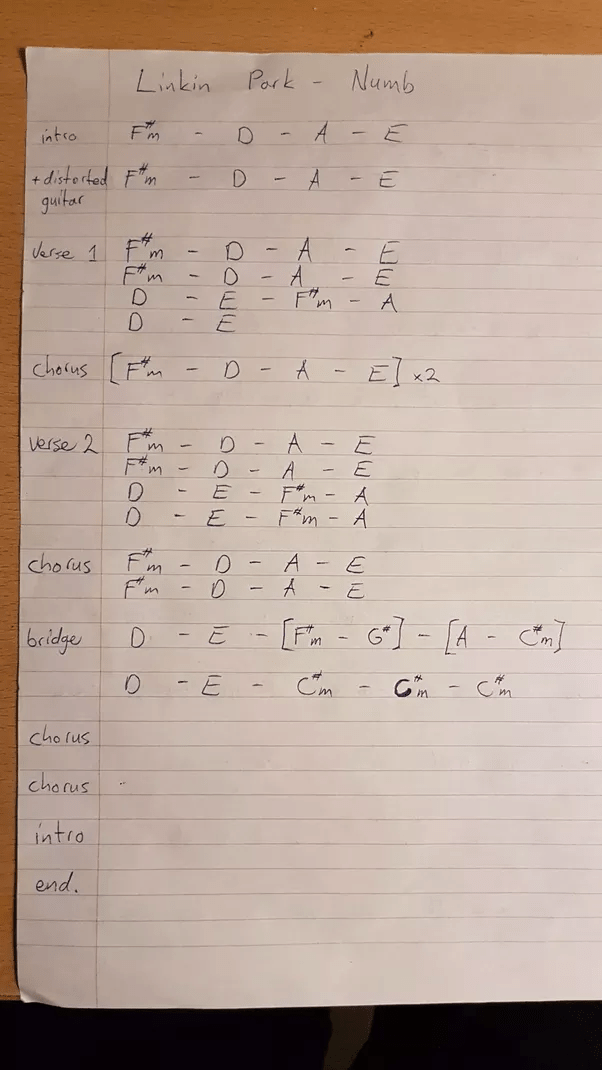 Linkin Park - Numb
intro F#m - D - A - E
+ distorted F#m - D - A - E
guitar
Verse 1 F#m - D - A - E
F#m - D - A - E
D - E - F#m - A
D - E
chorus [F#m - D - A - E] x2
verse 2 F#m - D - A - E
F#m - D - A - E
D - E - F#m - A
D - E - F#m - A
chorus F#m - D - A - E
F#m - D - A - E
bridge D - E - [F#m - G#] - [A - C#m]
D - E - C#m - C#m - C#m
chorus
chorus
intro
end.